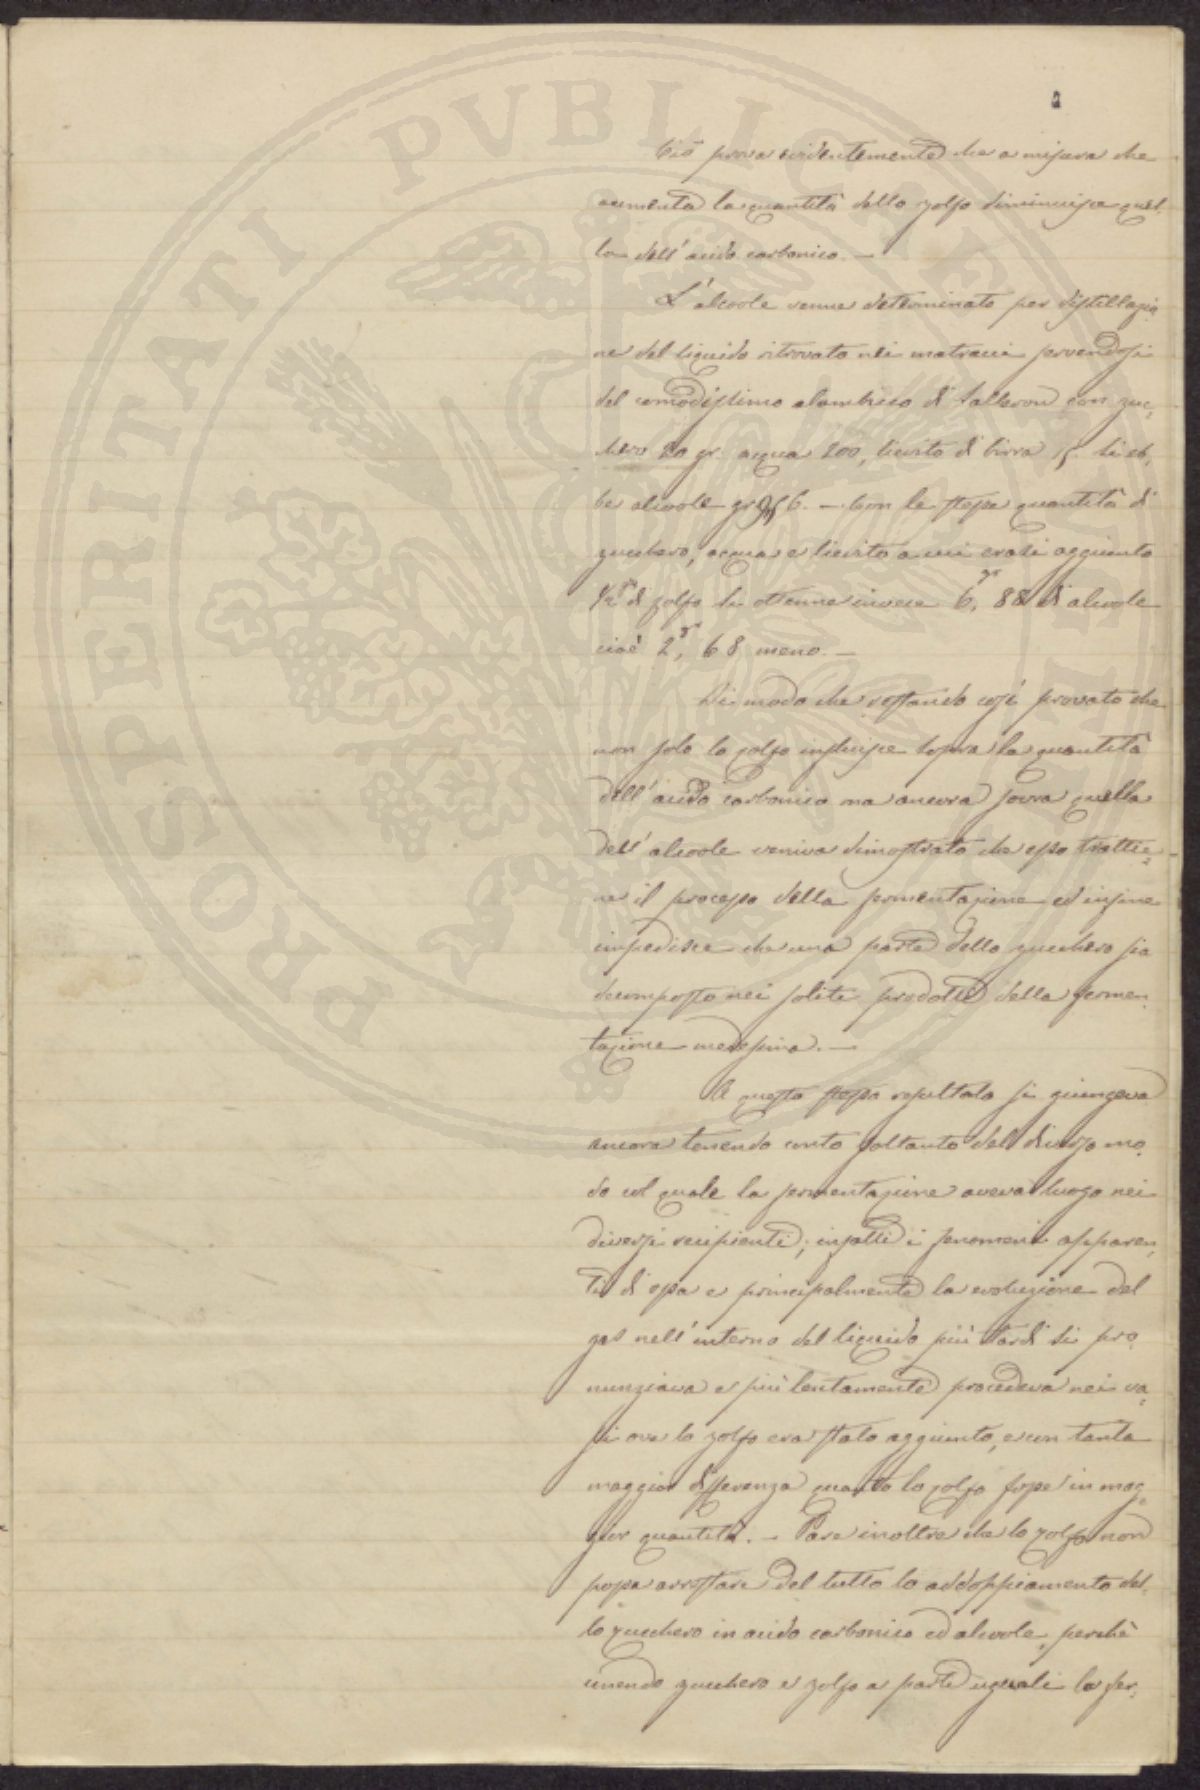 PROSPERITATI PVBLICAE
2
Ciò prova evidentemente che a misura che
aumenta la quantità dello zolfo diminuisce quel-
la dell'acido carbonico. —
L'alcoole venne determinato per distillazio
ne del liquido ritrovato nei matracci servendosi
del comodissimo alambicco di Salleron con zuc-
chero 20 gr. acqua 200, lievito di birra 15. si eb-
be alcoole gr 9,56. — Con le stesse quantità di
zucchero, acqua e lievito a cui erasi aggiunto
½ gr di zolfo si ottenne invece 6,gr 88 di alcoole
cioè 2,gr 68 meno. —
Di modo che restando così provato che
non solo lo zolfo influisce sopra la quantità
dell'acido carbonico ma ancora sovra quella
dell'alcoole veniva dimostrato che esso trattie-
ne il processo della fermentazione ed infine
impedisce che una parte dello zucchero sia
decomposto nei soliti prodotti della fermen-
tazione medesima. —
A questo stesso resultato si giungeva
ancora tenendo conto soltanto del diverso mo-
do col quale la fermentazione aveva luogo nei
diversi recipienti; infatti i fenomeni apparen-
ti di essa e principalmente la evoluzione del
gas nell'interno del liquido più tardi si pro-
nunziava e più lentamente procedeva nei va-
si ove lo zolfo era stato aggiunto, e con tanta
maggior differenza quanto lo zolfo fosse in mag-
gior quantità. — Pare inoltre che lo zolfo non
possa arrestare del tutto lo addoppiamento del-
lo zucchero in acido carbonico ed alcoole, perchè
unendo zucchero e zolfo a parti uguali la fer-